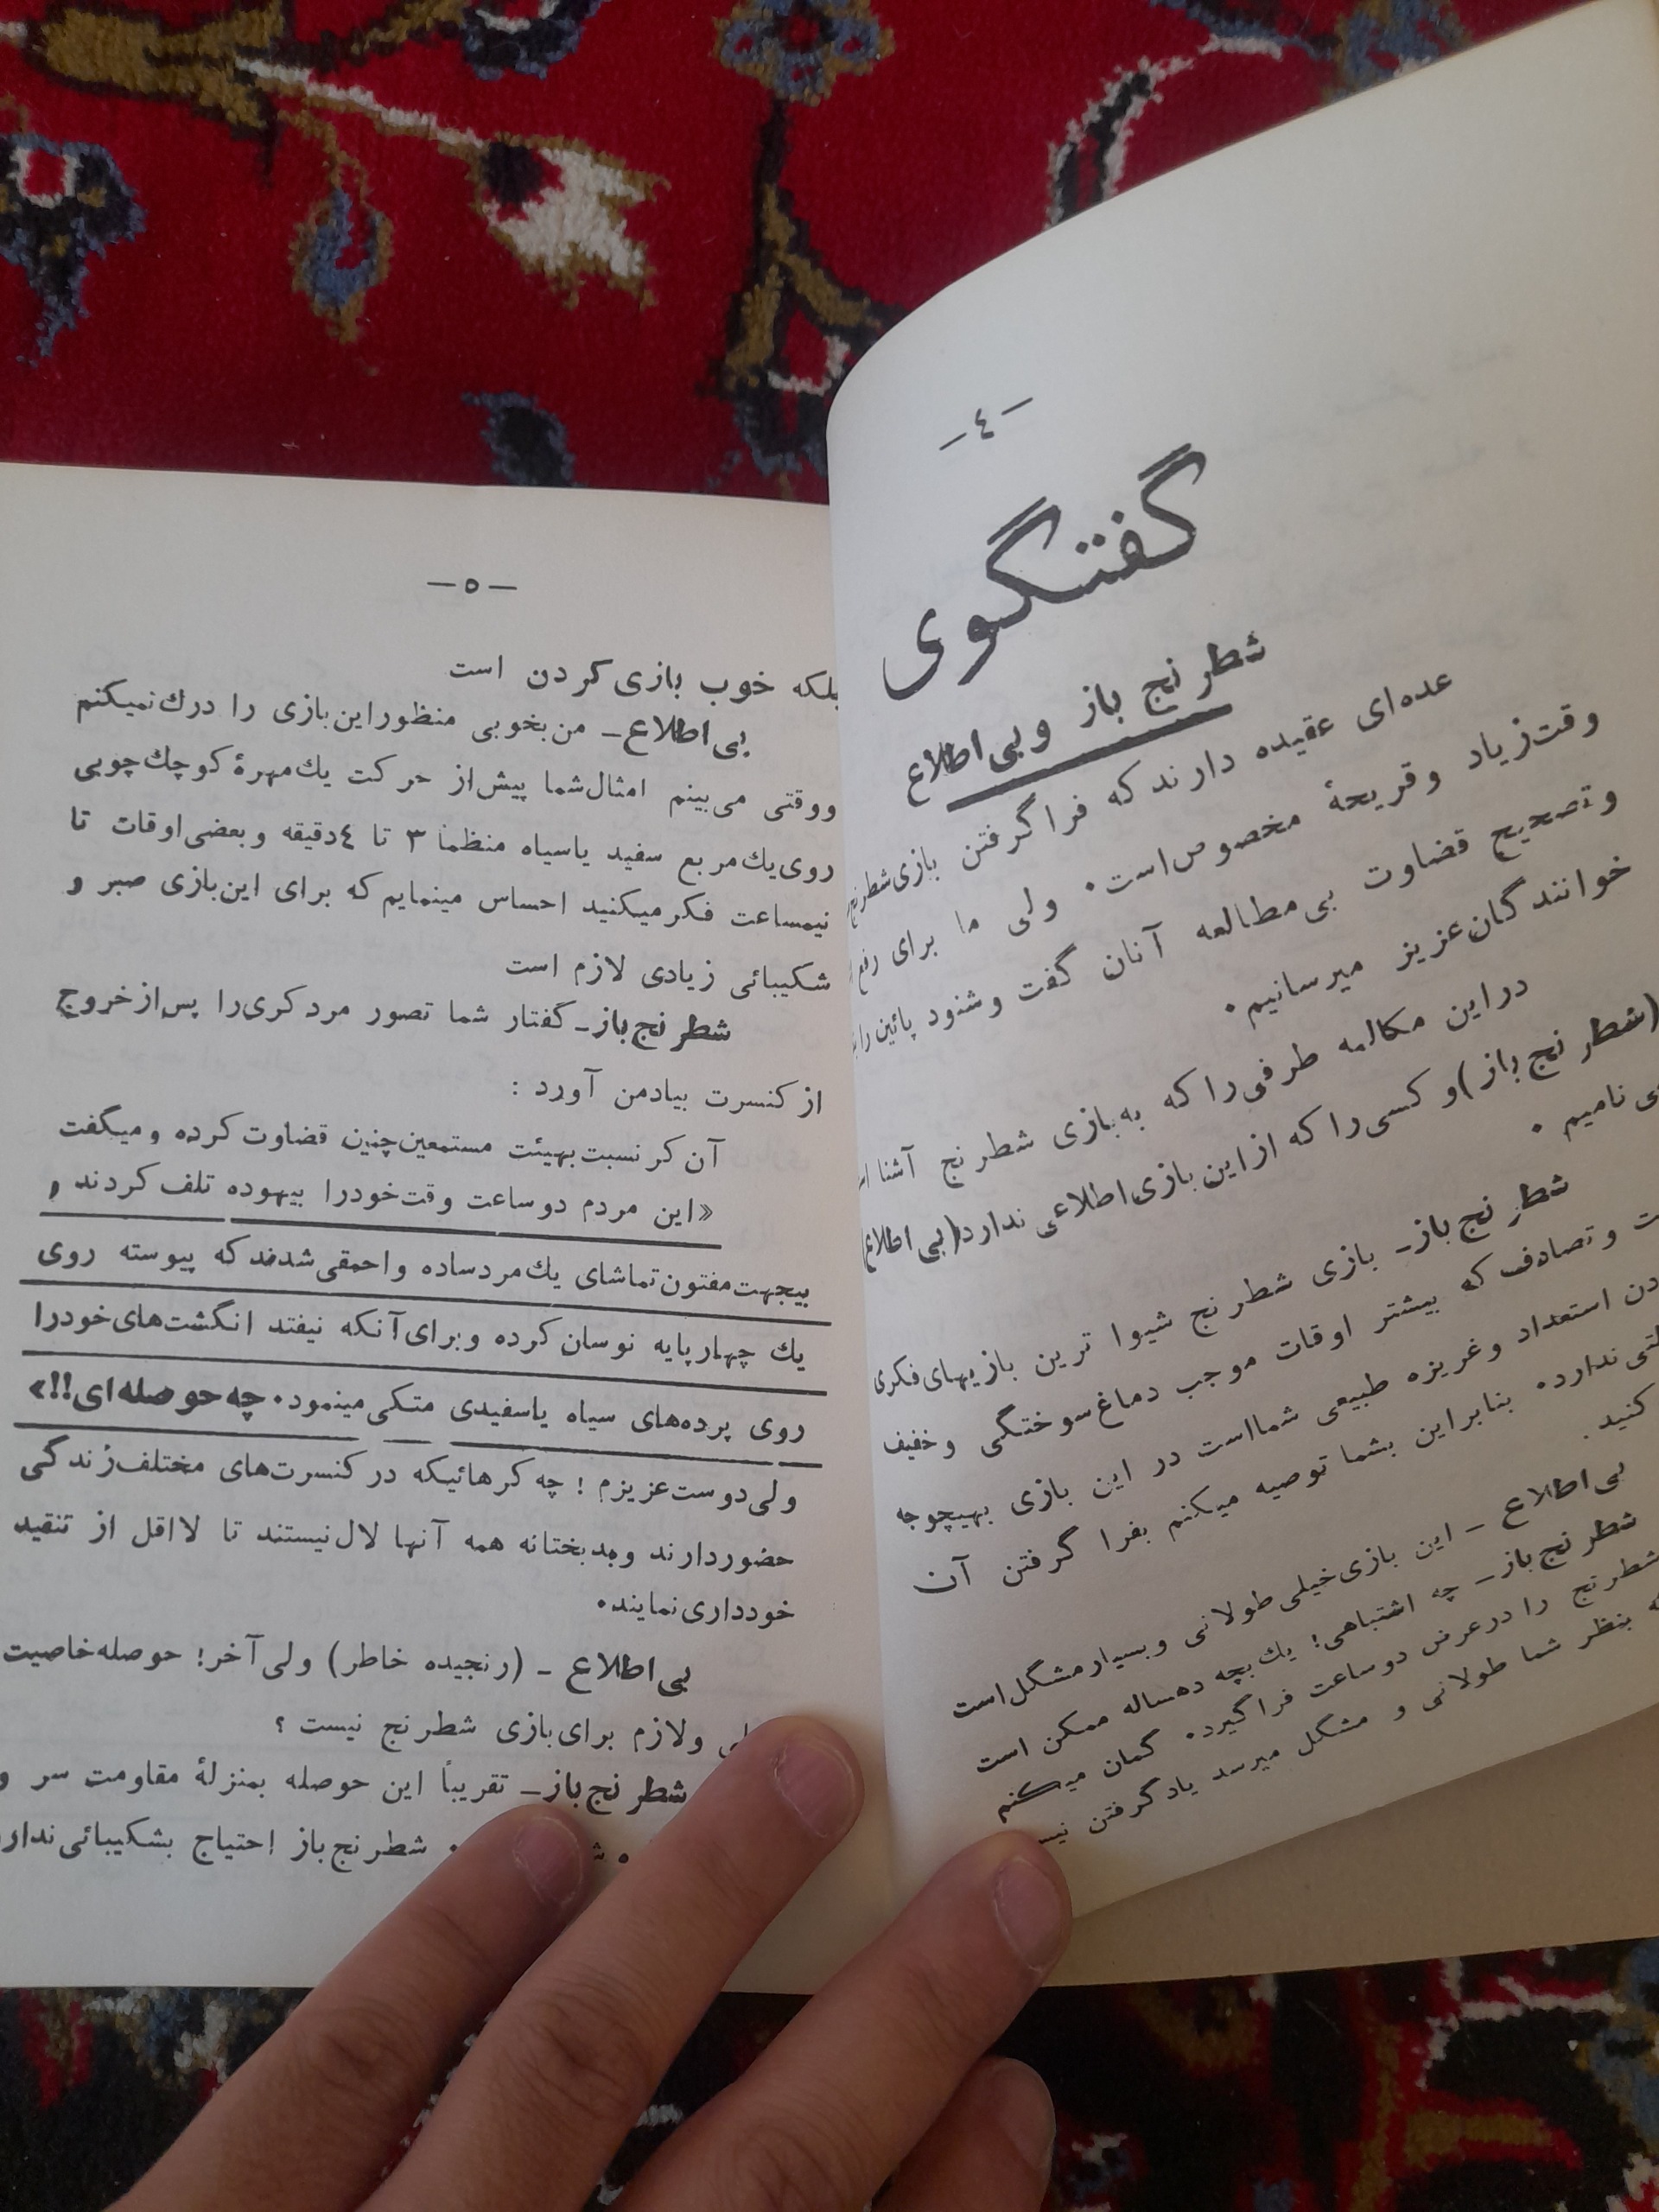 -٤-
گفتگوی
شطرنج باز و بی‌اطلاع
عده‌ای عقیده دارند که فراگرفتن بازی شطرنج
وقت زیاد و قریحهٔ مخصوص است. ولی ما برای رفع
و تصحیح قضاوت بی‌مطالعه آنان گفت و شنود پائین را
خوانندگان عزیز میرسانیم.
در این مکالمه طرفی را که به بازی شطرنج آشنا
(شطرنج باز) و کسی را که از این بازی اطلاعی ندارد (بی‌اطلاع)
نامیم.
شطرنج باز_ بازی شطرنج شیوا ترین بازیهای فکری
و تصادف که بیشتر اوقات موجب دماغ سوختگی و خفیف
استعداد و غریزه طبیعی شما است در این بازی بهیچوجه
ندارد. بنابراین بشما توصیه میکنم بفرا گرفتن آن
کنید.
بی‌اطلاع - این بازی خیلی طولانی و بسیار مشگل است
شطرنج باز_ چه اشتباهی! یك بچه ده‌ساله ممکن است
شطرنج را در عرض دو ساعت فراگیرد. گمان میکنم
بنظر شما طولانی و مشگل میرسد یاد گرفتن
-۵-
بلکه خوب بازی کردن است
بی‌اطلاع_ من بخوبی منظور این بازی را درك نمیکنم
و وقتی می‌بینم امثال شما پیش از حرکت یك مهرهٔ کوچك چوبی
روی یك مربع سفید یا سیاه منظماً ۳ تا ٤ دقیقه و بعضی اوقات تا
نیمساعت فکر میکنید احساس مینمایم که برای این بازی صبر و
شکیبائی زیادی لازم است
شطرنج باز_ گفتار شما تصور مرد کری را پس از خروج
از کنسرت بیاد من آورد :
آن کر نسبت بهیئت مستمعین چنین قضاوت کرده و میگفت
«این مردم دو ساعت وقت خود را بیهوده تلف کردند و
بیجهت مفتون تماشای یك مرد ساده و احمقی شدند که پیوسته روی
یك چهارپایه نوسان کرده و برای آنکه نیفتد انگشت‌های خود را
روی پرده‌های سیاه یا سفیدی متکی مینمود. چه حوصله‌ای!!»
ولی دوست عزیزم ! چه کرهائیکه در کنسرت‌های مختلف زندگی
حضور دارند و بدبختانه همه آنها لال نیستند تا لااقل از تنقید
خودداری نمایند.
بی‌اطلاع - (رنجیده خاطر) ولی آخر! حوصله خاصیت
و لازم برای بازی شطرنج نیست ؟
شطرنج باز_ تقریباً این حوصله بمنزلهٔ مقاومت سر و
شطرنج باز احتیاج بشکیبائی ندارد